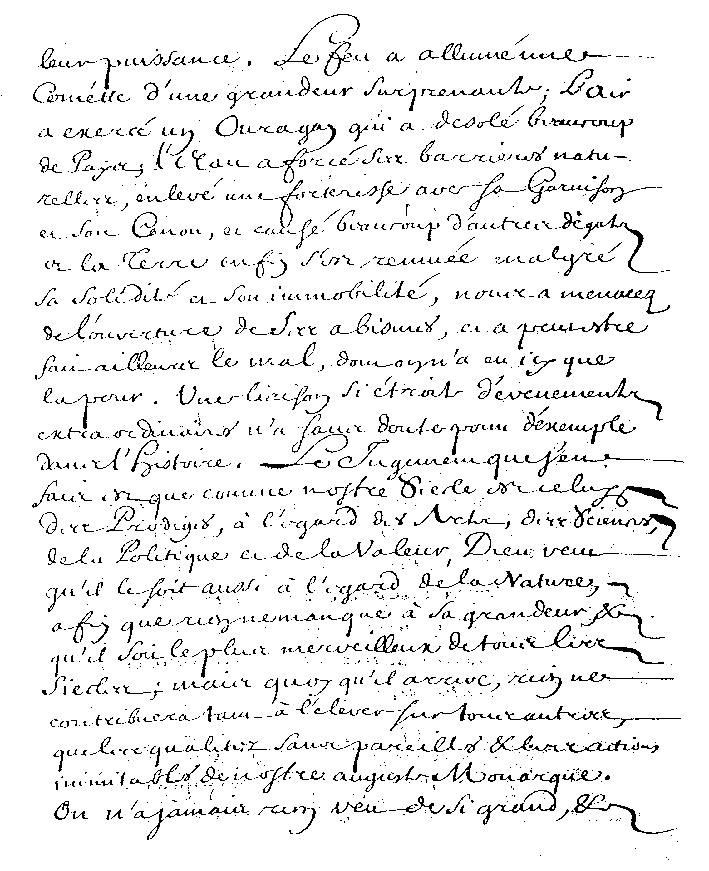 leur puissance. Le feu a allumé une
Cométte d'une grandeur surprenante; L'air
a exercé un Ouragan qui a desolé beaucoup
de Pays; l'Eau a forcé ses barrieres natu-
relles, enlevé une forteresse avec sa Garnison
et son Canon, et causé beaucoup d'autres dégats
et la Terre enfin s'est remuée malgré
sa solidité et son immobilité, nous a menacez
de l'ouverture de ses abismes, et a peut estre
fait ailleurs le mal, dont on n'a eu icy que
la peur. Une liaison si étroite d'évenements
extraordinaires n'a sans doute point d'éxemple
dans l'Histoire. Le Jugement que j'en
fais est que comme nostre Siecle est celuy
des Prodiges, à l'égard des Arts, des Sciences,
de la Politique et de la Valeur, Dieu veut
qu'il le soit aussi à l'égard de la Nature,
afin que rien ne manque à sa grandeur, &
qu'il soit le plus merveilleux de tous les
Siecles; mais quoy qu'il arrive, rien ne
contribuera tant à l'élever sur tous autres,
que les qualitez sans pareilles & les actions
inimitables de nostre auguste Monarque.
On n'a jamais rien veu de si grand, &